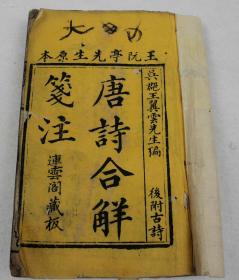 王阮亭先生原本
吳趨王翼雲先生編
後附古詩
唐詩合解
箋注
連雲閣藏板